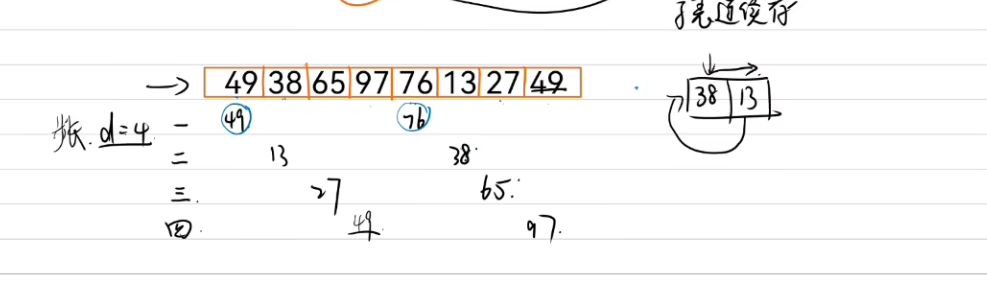 → 49 38 65 97 76 13 27 49
38 13
步长. d=4 一 49 76
二 13 38
三. 27 65
四. 49 97.